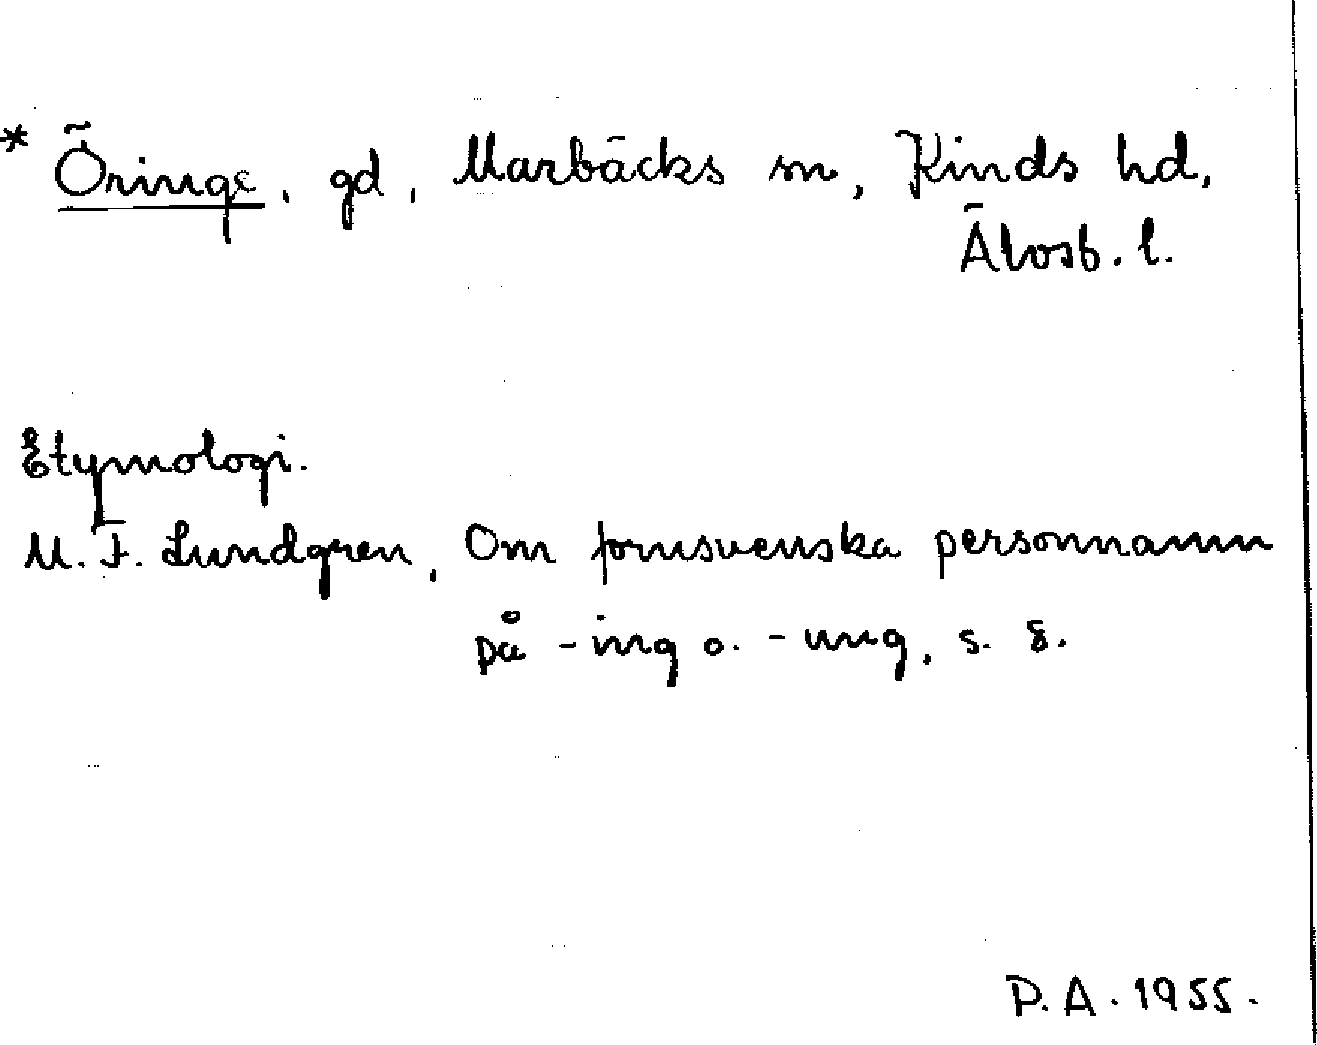 * Öringe, gd, Marbäcks sn, Kinds hd,
Älvsb. l.
Etymologi.
M. F. Lundgren, Om fornsvenska personnamn
på -ing o. -ung, s. 8.
P.A. 1955.